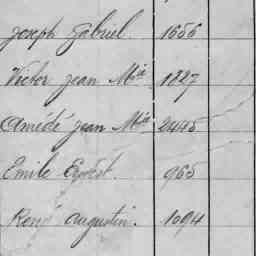 Joseph Gabriel. 1656
Victor Jean Mie 1827
Amédé Jean Mie 2445
Emile Ernest. 965
René Augustin. 1094